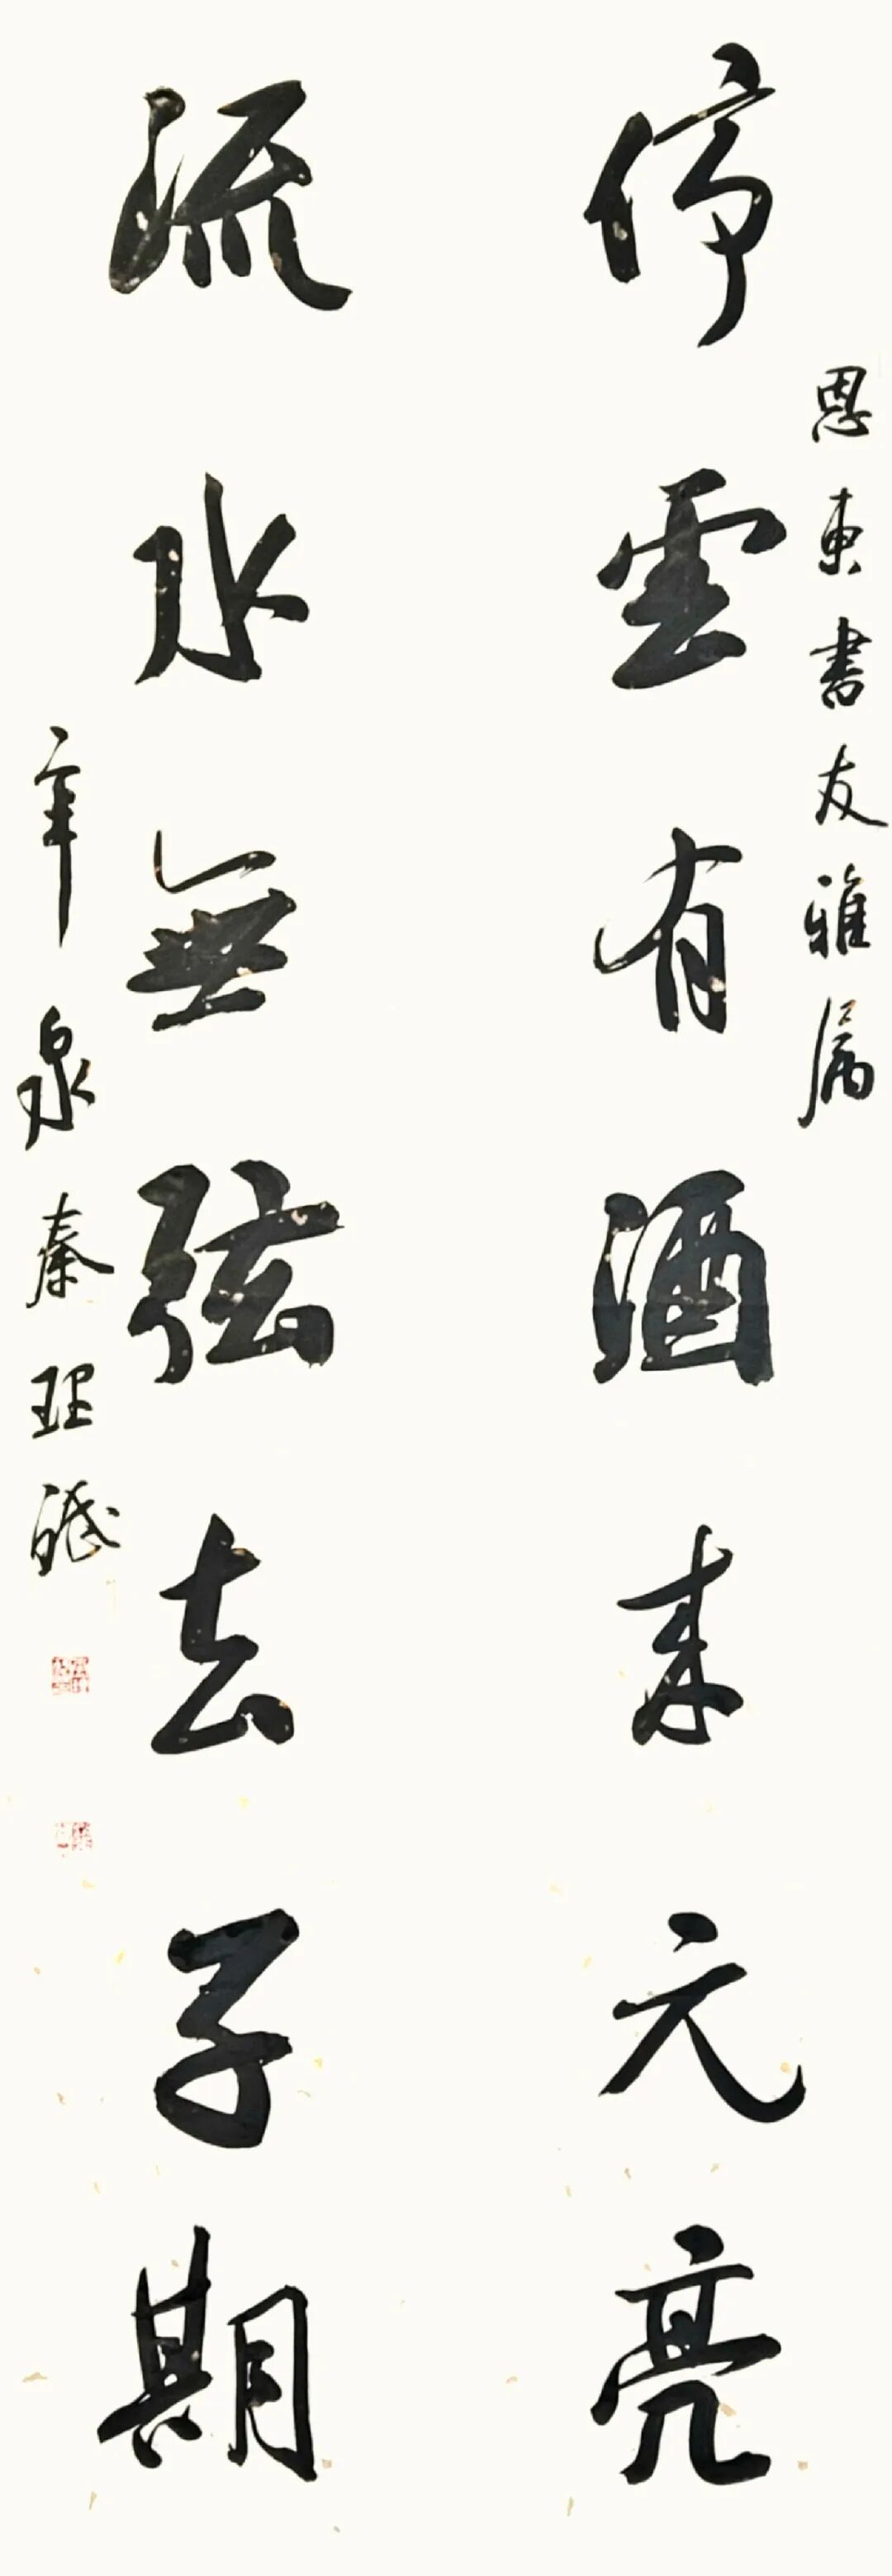 恩東書友雅属
停雲有酒来元亮
流水無弦去子期
辛泉秦理斌